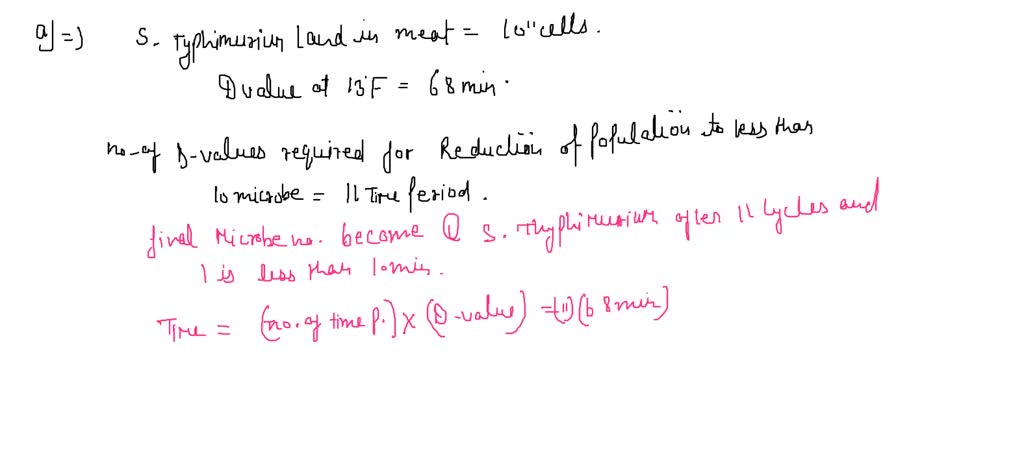 a] =) S. Typhimurium Load in meat = 10¹¹ cells.
D value at 13°F = 68 min.
no. of D-values required for Reduction of Population to less than
10 microbe = 11 Time Period.
final Microbe no. become 1 S. Thyphimurium after 11 Cycles and
1 is less than 10 min.
Time = (no. of time P.) × (D-value) = (11) (68 min)